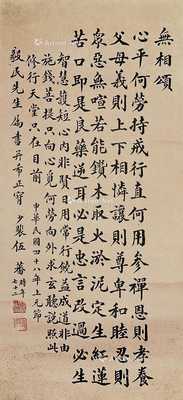 無相頌
心平何勞持戒行直何用參禪恩則孝養
父母義則上下相憐讓則尊卑和睦忍則
眾惡無喧若能鑽木取火淤泥定生紅蓮
苦口即是良藥逆耳必是忠言改過必生
智慧護短心內非賢日用常行饒益成道非由
施錢菩提只向心覓何勞向外求玄聽說照此
修行天堂只在目前 中華民國四十八年上元節
毅民先生屬書并希正 少裴伍蕃時年七十三